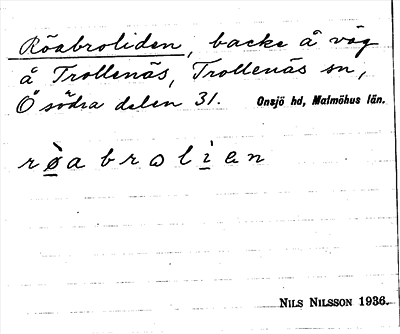 Röabroliden, backe å väg
å Trollenäs, Trollenäs sn,
Ö södra delen 31. Onsjö hd, Malmöhus län.
rø̀abrolìen
Nils Nilsson 1936.